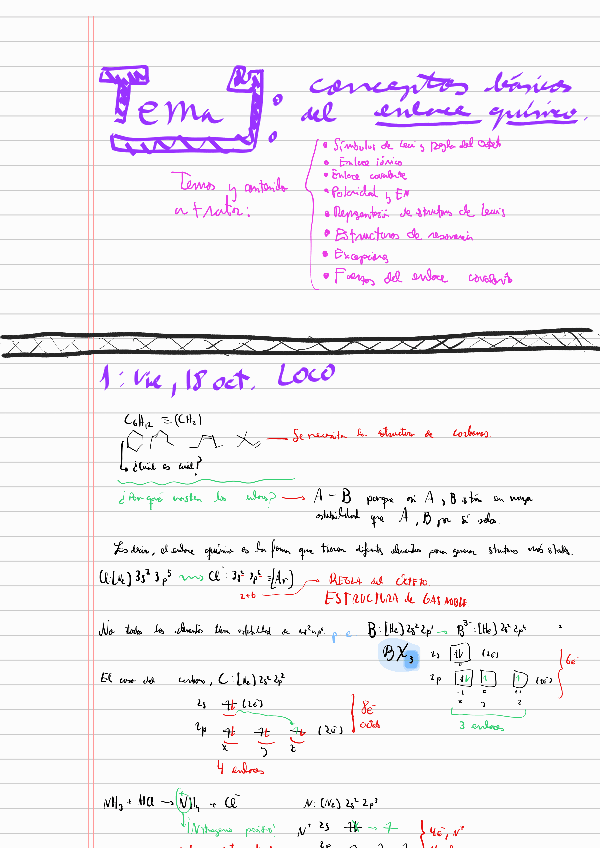 Tema 7: conceptos básicos
del enlace químico.
Temas y contenido
a tratar:
• Símbolos de Lewis y regla del octeto
• Enlace iónico
• Enlace covalente
• Polaridad y EN
• Representación de estructuras de Lewis
• Estructuras de resonancia
• Excepciones
• Fuerzas del enlace covalente
1: Vie, 18 oct. LOCO
C6H12 ≡ (CH2)
Se necesita la estructura de carbonos.
¿Cuál es cual?
¿Por qué existen los enlaces? → A – B porque si A, B están en mayor
estabilidad que A, B por si solos.
Es decir, el enlace químico es la forma que tienen diferentes elementos para generar estructuras más estables.
Cl: [Ne] 3s² 3p⁵ → Cl⁻: 3s² 3p⁶ = [Ar] → REGLA del OCTETO
2+6
ESTRUCTURA de GAS NOBLE
No todos los elementos tienen estabilidad a ns² np⁶. p e B: [He] 2s² 2p¹ → B³⁻: [He] 2s² 2p⁴
BX₃
2s (2e⁻)
2p
6e⁻
3 enlaces
El caso del carbono, C: [He] 2s² 2p²
2s (2e⁻)
2p (2e⁻)
x y z
8e⁻
octeto
4 enlaces
NH₃ + HCl → NH₄ + Cl⁻
N: [He] 2s² 2p³
¡Nitrógeno positivo!
N⁺ 2s
4e⁻, N⁺
2p